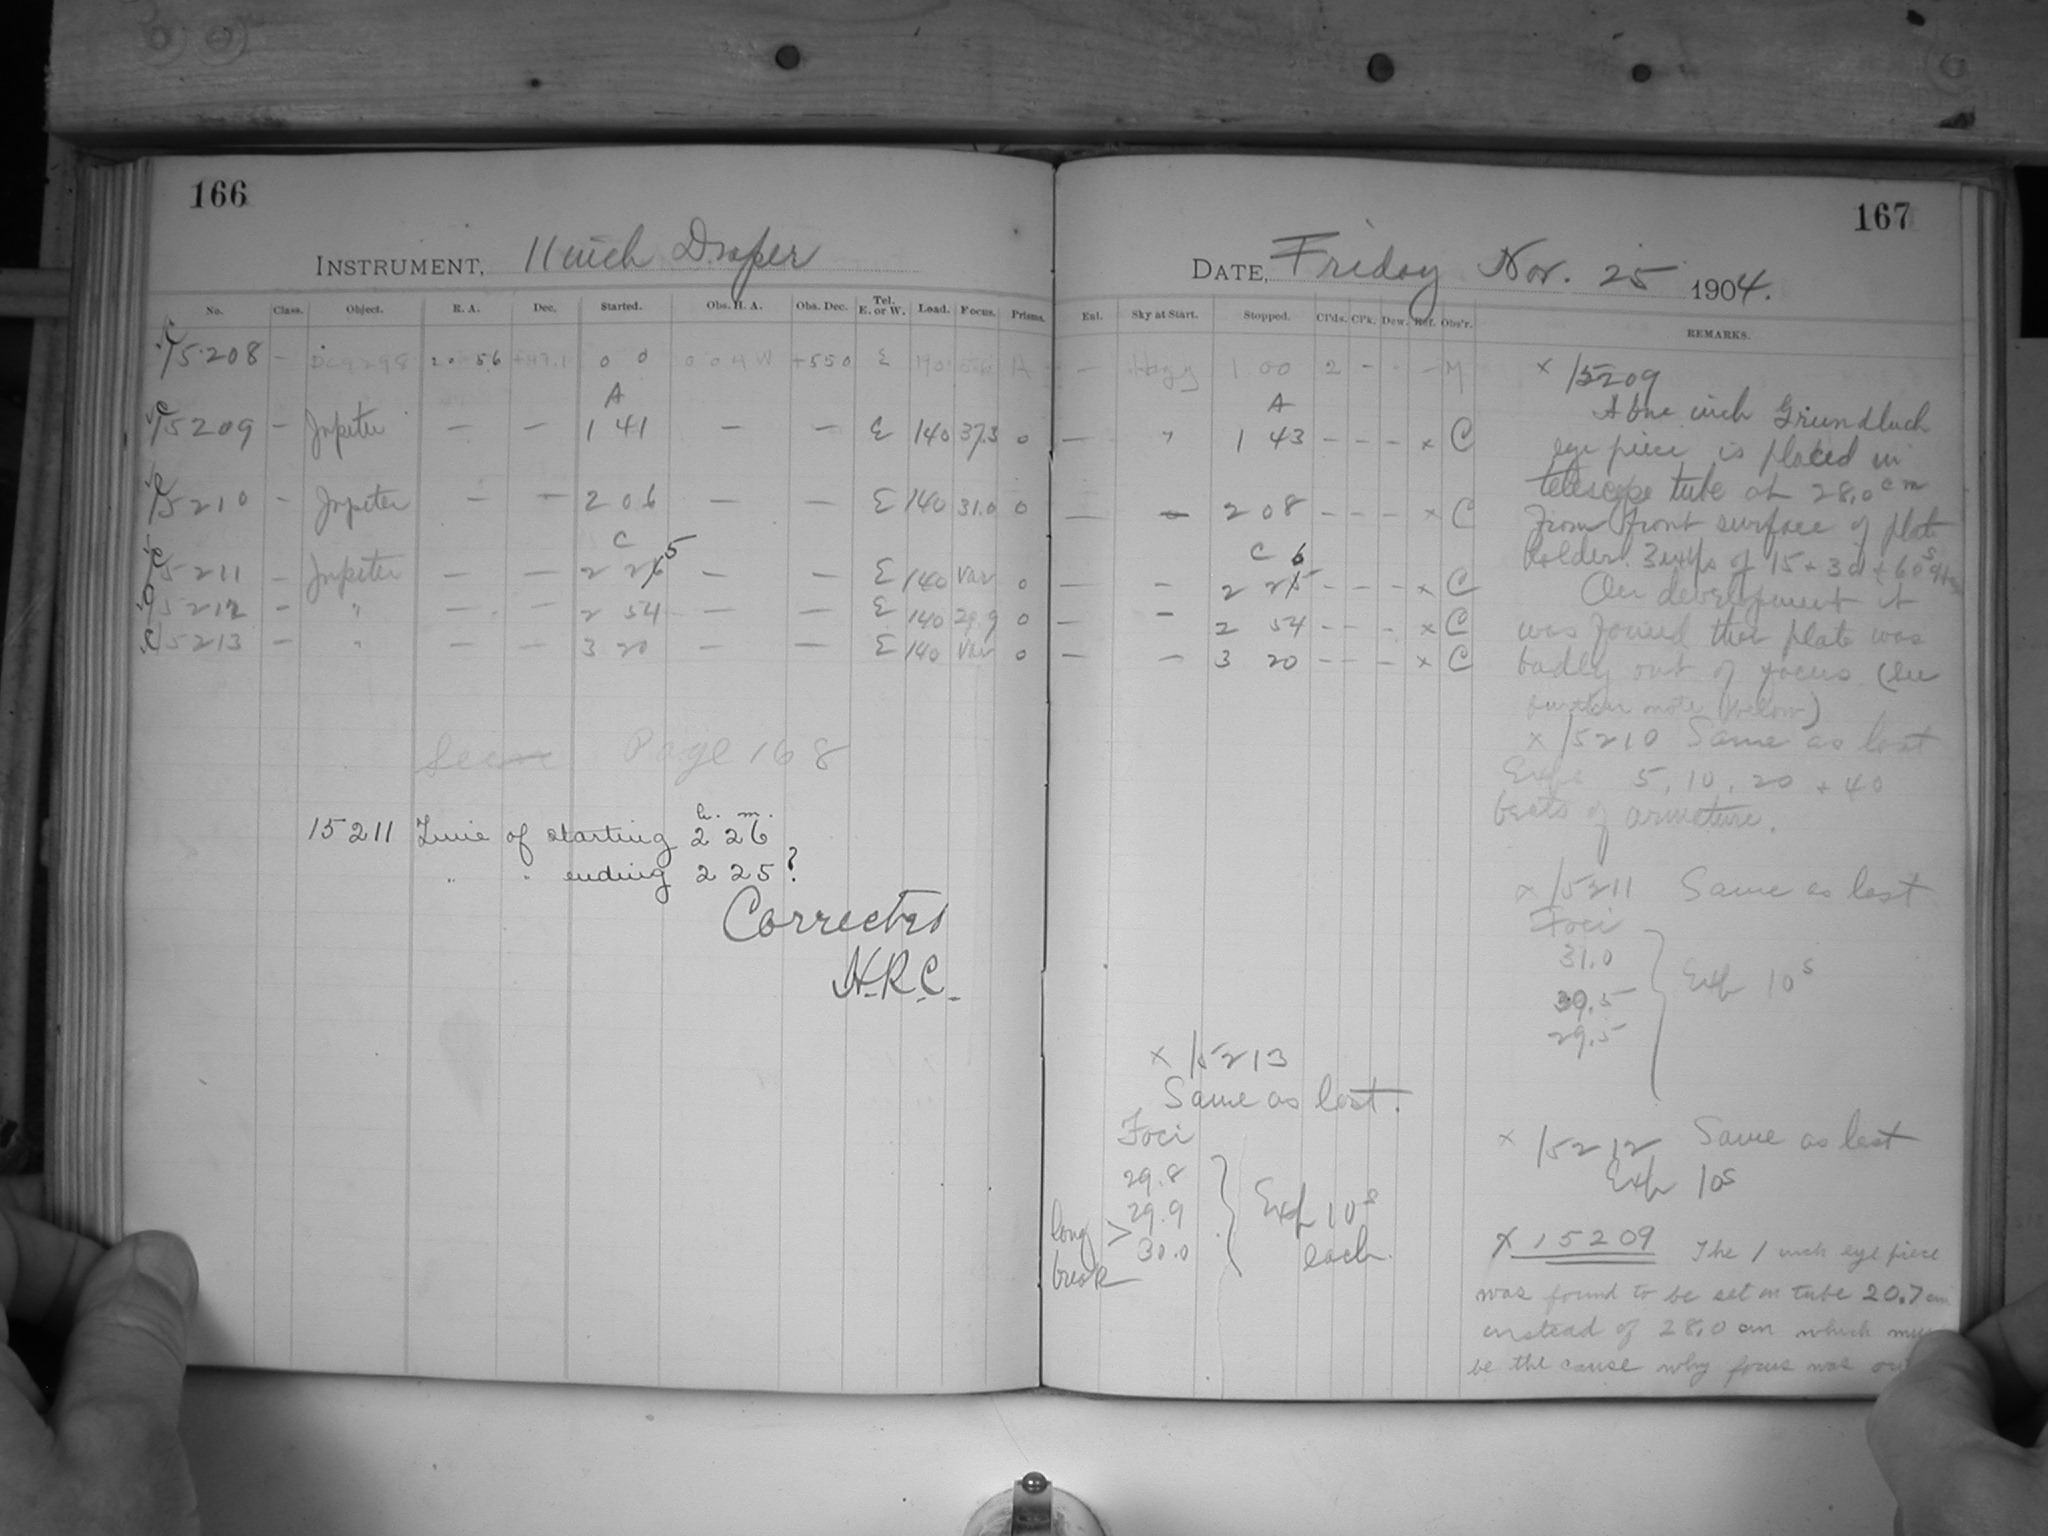 166
INSTRUMENT, 11 inch Draper
No. Class. Object. R. A. Dec. Started. Obs. H. A. Obs. Dec. Tel. E. or W. Load. Focus. Prisms.
15208 — 20 56 0 0 0 04 W +55.0 E A
A
15209 — Jupiter — — 1 41 — — E 140 37.3 0
15210 — Jupiter — — 2 06 — — E 140 31.0 0
C 5
15211 — Jupiter — — 2 26 — — E 140 Var 0
15212 — " — — 2 54 — — E 140 29.9 0
15213 — " — — 3 20 — — E 140 Var 0
Page 168
h. m.
15211 Time of starting 2 26
" " ending 2 25?
Corrected
H.R.C.
167
DATE, Friday Nov. 25 1904.
Enl. Sky at Start. Stopped. Cl'ds. Cl'k. Dew. Ref. Obs'r. REMARKS.
— Hazy 1 00 2 - - - M
A
— " 1 43 - - - x C
— — 2 08 - - - x C
C 6
— — 2 25 - - - x C
— — 2 54 - - - x C
— — 3 20 - - - x C
x 15209
A one inch Grundlach
eye piece is placed in
telescope tube at 28.0 cm
from front surface of plate
holder. 3 exps of 15 + 30 + 60s
On development it
was found that plate was
badly out of focus (See
further note below)
x 15210 Same as last
Exps 5, 10, 20 + 40
beats of armature.
x 15211 Same as last
Foci
31.0
30.5
29.5
Exp 10s
x 15212 Same as last
Exp 10s
x 15213
Same as last.
Foci
29.8
29.9
30.0
long break >
Exp 10s
each.
x 15209 The 1 inch eye piece
was found to be set on tube 20.7 cm
instead of 28.0 cm which
be the cause why focus was